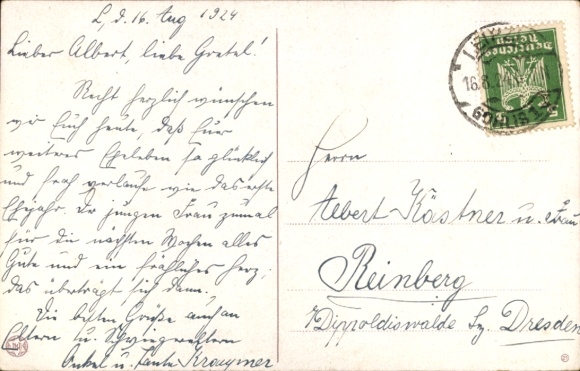 L, d. 16. Aug 1924
Lieber Albert, liebe Gretel!
Recht herzlich wünschen
wir Euch heute, daß Euer
weiteres Eheleben so glücklich
und froh verlaufe wie das erste
Ehejahr. Der jungen Frau zumal
für die nächsten Wochen alles
Gute und ein fröhliches Herz;
das überträgt sich dann.
Die besten Grüße auch an
Eltern u. Schwiegereltern
Onkel u. Tante
Deutsches Reich
16.8.
GOHLIS
Herrn
Albert Kästner u. Frau
Reinberg
b/Dippoldiswalde Bz. Dresden